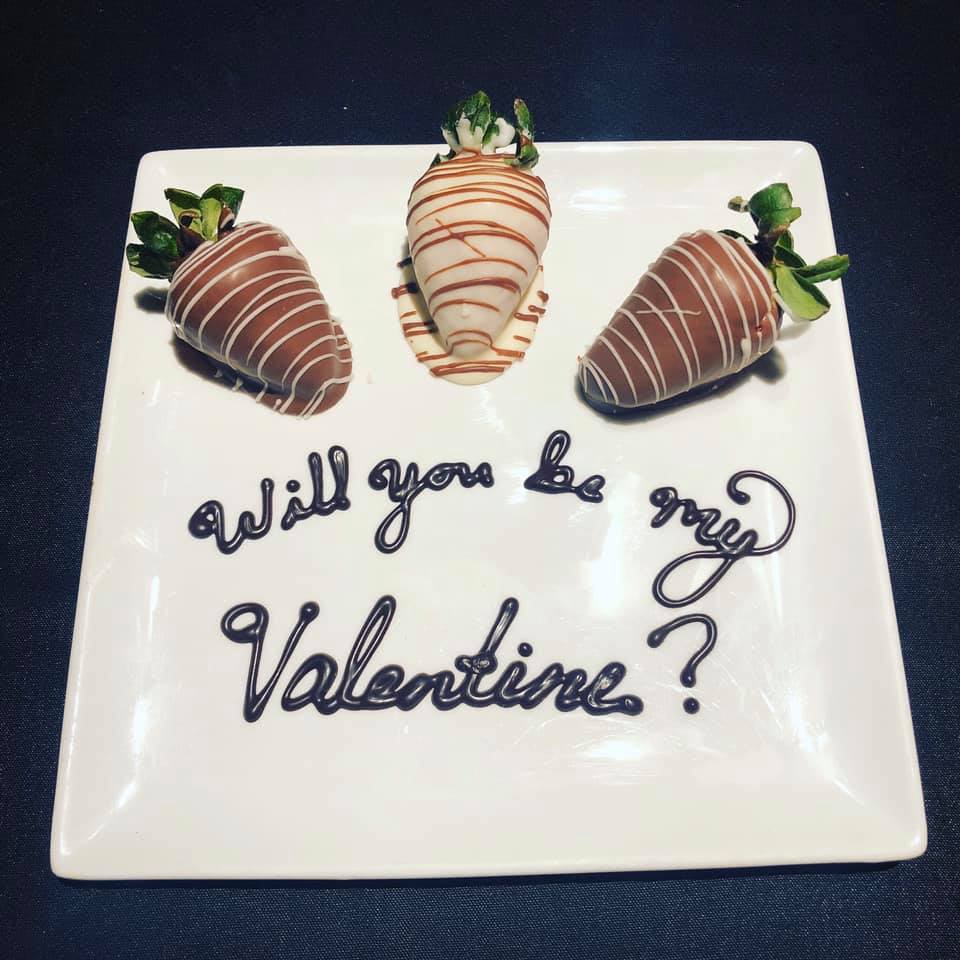 Will you be my
Valentine?